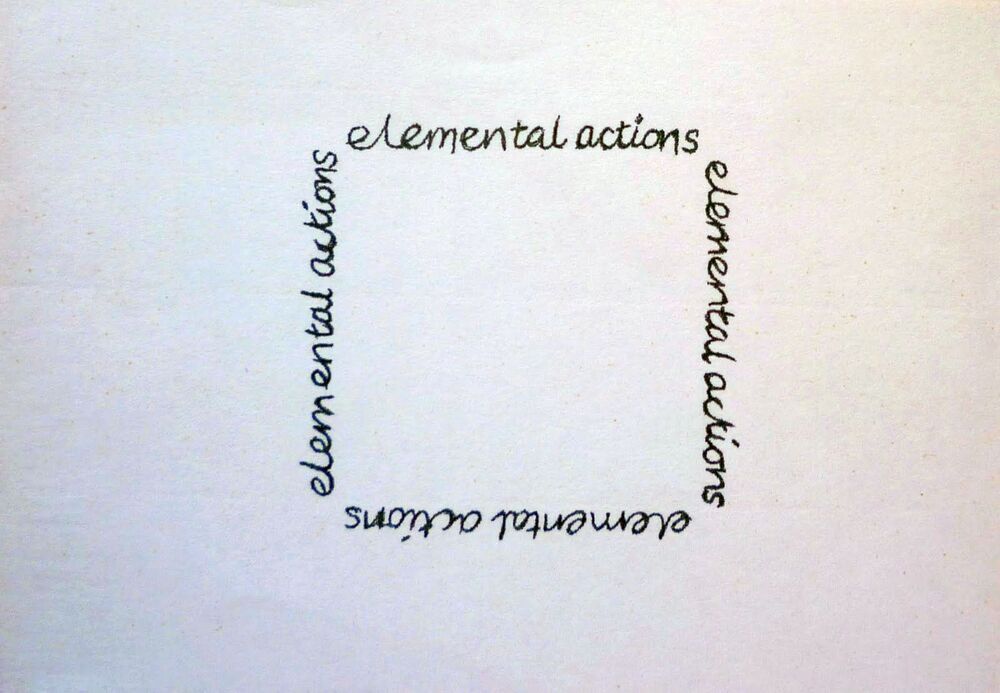 elemental actions
elemental actions
elemental actions
elemental actions